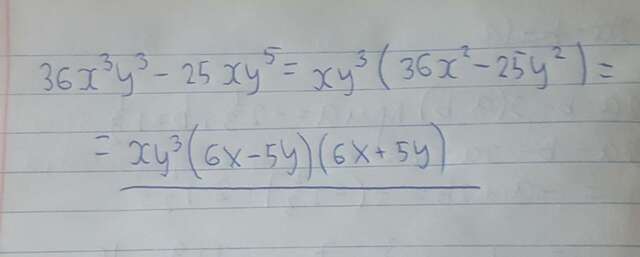 36x³y³ - 25xy⁵ = xy³(36x² - 25y²) =
= xy³(6x - 5y)(6x + 5y)